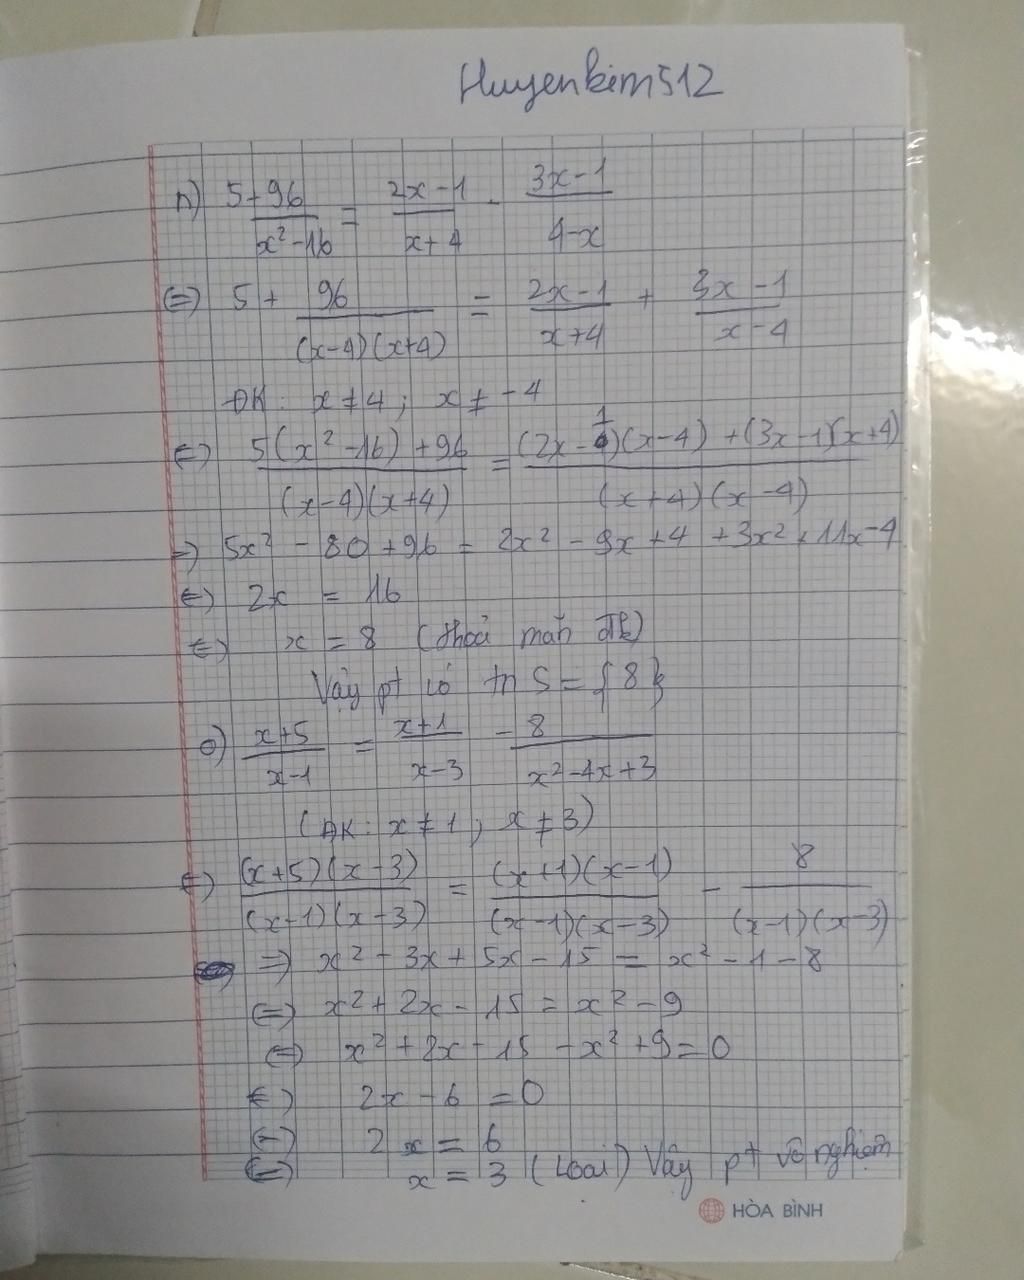 Huyenkim512
n) 5+96/x²-16 = 2x-1/x+4 - 3x-1/4-x
(=) 5 + 96/(x-4)(x+4) = 2x-1/x+4 + 3x-1/x-4
ĐK: x ≠ 4 ; x ≠ -4
(=) 5(x²-16)+96/(x-4)(x+4) = (2x-1)(x-4)+(3x-1)(x+4)/(x+4)(x-4)
=) 5x² - 80 + 96 = 2x² - 9x + 4 + 3x² + 11x - 4
(=) 2x = 16
(=) x = 8 (thoả mãn đk)
Vậy pt có tn S = { 8 }
o) x+5/x-1 = x+1/x-3 - 8/x²-4x+3
(ĐK: x ≠ 1 ; x ≠ 3)
(=) (x+5)(x-3)/(x-1)(x-3) = (x+1)(x-1)/(x-1)(x-3) - 8/(x-1)(x-3)
=) x² - 3x + 5x - 15 = x² - 1 - 8
(=) x² + 2x - 15 = x² - 9
(=) x² + 2x - 15 - x² + 9 = 0
(=) 2x - 6 = 0
(=) 2x = 6
(=) x = 3 (Loại) Vậy pt vô nghiệm
HÒA BÌNH